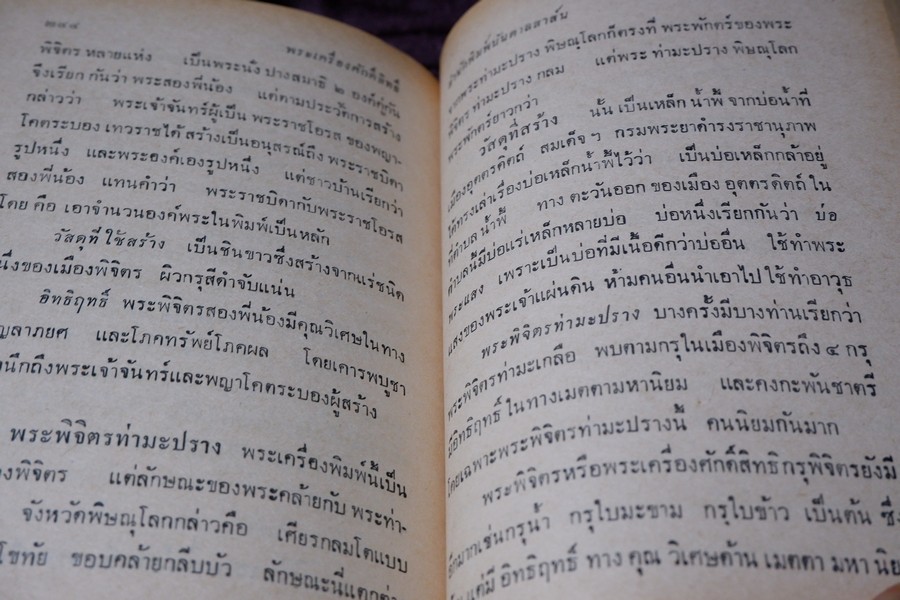 ๒๘๘ พระเครื่องศักดิ์สิทธิ์
พิจิตร หลายแห่ง เป็นพระนั่ง ปางสมาธิ ๒ องค์คู่กัน
จึงเรียก กันว่า พระสองพี่น้อง แต่ตามประวัติการสร้าง
กล่าวว่า พระเจ้าจันทร์ผู้เป็น พระราชโอรส ของพญา-
โคตระบอง เทวราชได้ สร้างเป็นอนุสรณ์ถึง พระราชบิดา
รูปหนึ่ง และพระองค์เองรูปหนึ่ง แต่ชาวบ้านเรียกว่า
สองพี่น้อง แทนคำว่า พระราชบิดากับพระราชโอรส
โดย คือ เอาจำนวนองค์พระในพิมพ์เป็นหลัก
วัสดุที่ใช้สร้าง เป็นชินขาวซึ่งสร้างจากแร่ชนิด
นึ่งของเมืองพิจิตร ผิวกรุสีดำจับแน่น
อิทธิฤทธิ์ พระพิจิตรสองพี่น้องมีคุณวิเศษในทาง
ญลาภยศ และโภคทรัพย์โภคผล โดยเคารพบูชา
นึกถึงพระเจ้าจันทร์และพญาโคตระบองผู้สร้าง
พระพิจิตรท่ามะปราง พระเครื่องพิมพ์นี้เป็น
องพิจิตร แต่ลักษณะของพระคล้ายกับ พระท่า-
จังหวัดพิษณุโลกกล่าวคือ เศียรกลมโตแบบ
โขทัย ขอบคล้ายกลีบบัว ลักษณะนี้แตกต่า
พระท่ามะปราง พิษณุโลกก็ตรงที่ พระพักตร์ของพระ
พิจิตร ท่ามะปราง กลม แต่พระ ท่ามะปราง พิษณุโลก
พระพักตร์ยาวกว่า
วัสดุที่สร้าง นั้น เป็นเหล็ก น้ำพี้ จากบ่อน้ำที่
เมืองอุตตรดิตถ์ สมเด็จฯ กรมพระยาดำรงราชานุภาพ
ได้ทรงเล่าเรื่องบ่อเหล็กน้ำพี้ไว้ว่า เป็นบ่อเหล็กกล้าอยู่
ที่ตำบล น้ำพี้ ทาง ตะวันออก ของเมือง อุตตรดิตถ์ ใน
ตำบลนี้มีบ่อแร่เหล็กหลายบ่อ บ่อหนึ่งเรียกกันว่า บ่อ
พระแสง เพราะเป็นบ่อที่มีเนื้อดีกว่าบ่ออื่น ใช้ทำพระ
แสงของพระเจ้าแผ่นดิน ห้ามคนอื่นนำเอาไป ใช้ทำอาวุธ
พระพิจิตรท่ามะปราง บางครั้งมีบางท่านเรียกว่า
พระพิจิตรท่ามะเกลือ พบตามกรุในเมืองพิจิตรถึง ๔ กรุ
มีอิทธิฤทธิ์ ในทางเมตตามหานิยม และคงกะพันชาตรี
โดยเฉพาะพระพิจิตรท่ามะปรางนี้ คนนิยมกันมาก
พระพิจิตรหรือพระเครื่องศักดิ์สิทธิ์กรุพิจิตรยังมี
อีกมากเช่นกรุน้ำ กรุใบมะขาม กรุใบข้าว เป็นต้น ซึ่ง
แต่มี อิทธิฤทธิ์ ทาง คุณ วิเศษด้าน เมตตา มหา นิย